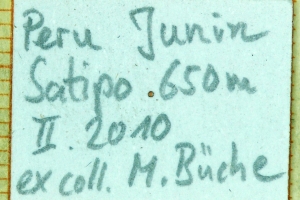 Peru Junin
Satipo 650m
II. 2010
ex coll. M. Büche